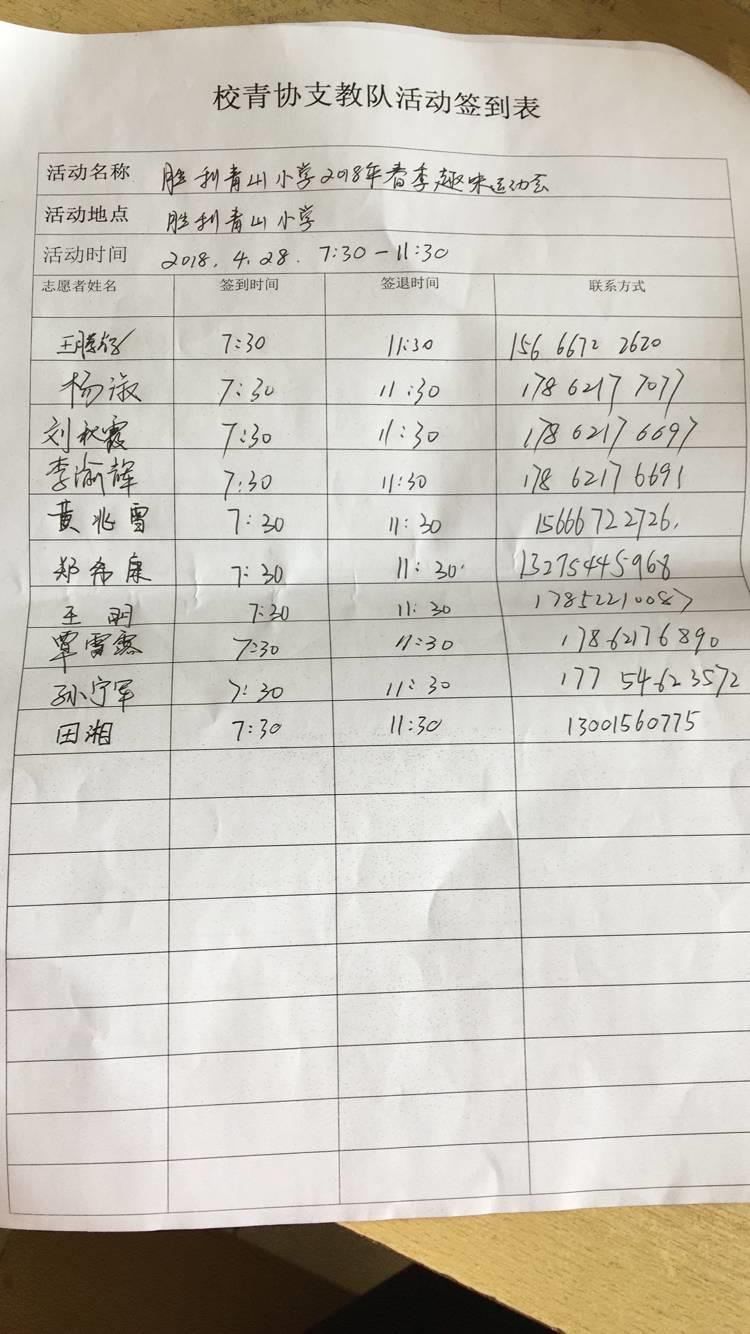 校青协支教队活动签到表
活动名称 胜利青山小学2018年春季趣味运动会
活动地点 胜利青山小学
活动时间 2018.4.28. 7:30-11:30
志愿者姓名 签到时间 签退时间 联系方式
7:30 11:30 156 6672 2620
杨淑 7:30 11:30 178 6217 7077
刘秋霞 7:30 11:30 178 6217 6697
李渝辉 7:30 11:30 178 6217 6691
黄兆雪 7:30 11:30 15666722726.
郑希康 7:30 11:30. 13275445968
王玥 7:30 11:30 17852210087
覃雪露 7:30 11:30 17862176890
孙宁军 7:30 11:30 177 54623572
田湘 7:30 11:30 13001560775